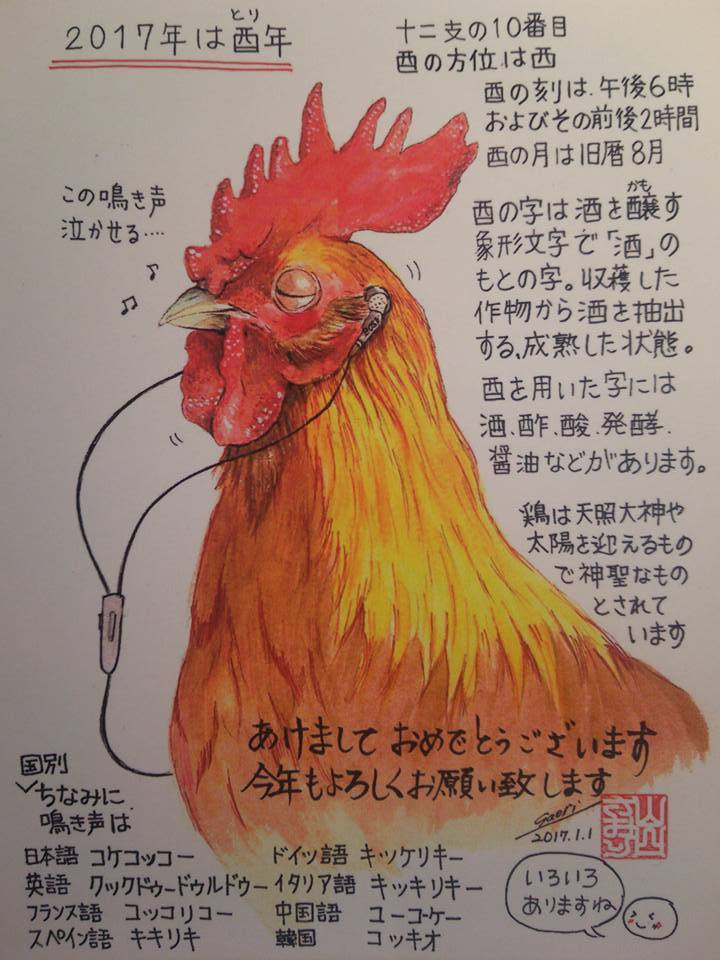 とり
2017年は酉年
十二支の10番目
酉の方位は西
酉の刻は、午後6時
およびその前後2時間
酉の月は旧暦8月
この鳴き声
泣かせる‥‥
かも
酉の字は酒を醸す
象形文字で「酒」の
もとの字。収穫した
作物から酒を抽出
する、成熟した状態。
酉を用いた字には
酒、酢、酸、発酵、
醤油などがあります。
鶏は天照大神や
太陽を迎えるもの
で神聖なもの
とされて
います
BOSE
あけまして おめでとうございます
今年もよろしくお願い致します
Saori
2017.1.1
国別
ちなみに
鳴き声は
日本語 コケコッコー
英語 クックドゥードゥルドゥー
フランス語 コッコリコー
スペイン語 キキリキ
ドイツ語 キッケリキー
イタリア語 キッキリキー
中国語 ユーコーケー
韓国 コッキオ
いろいろ
ありますね